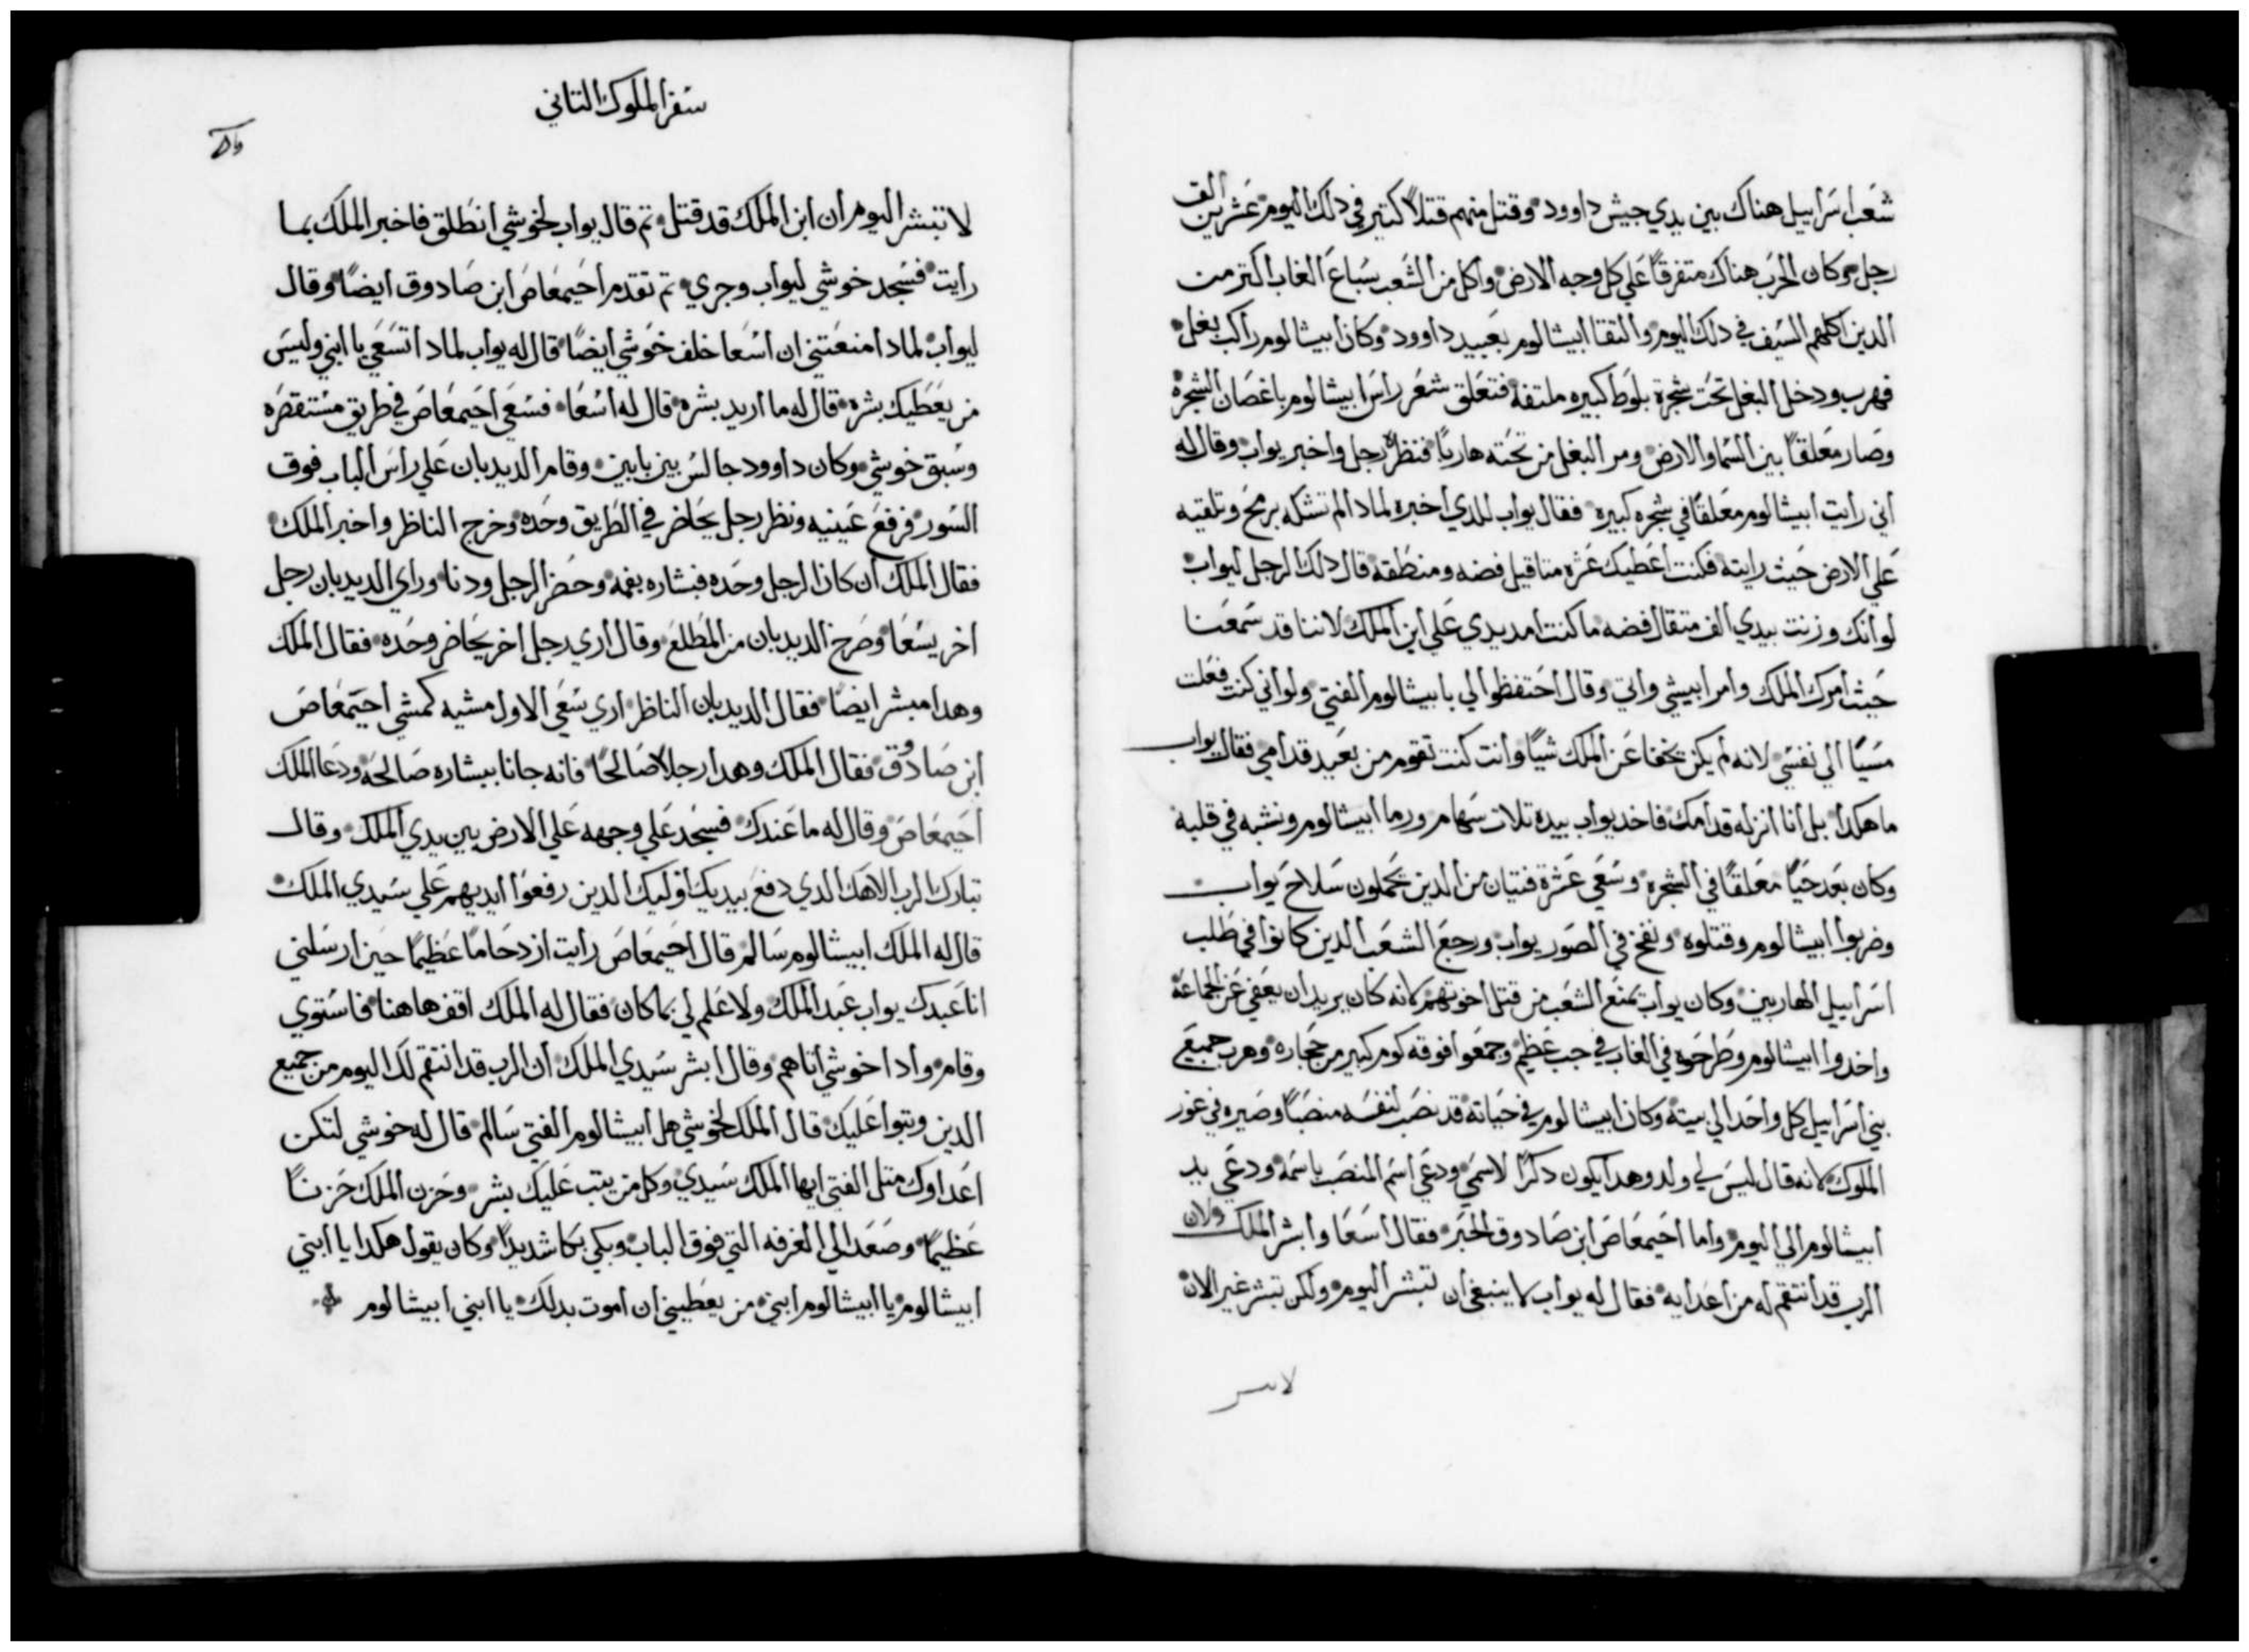 شعب اسراييل هناك بين يدي جيش داوود وقتل منهم قتلاً كتير في دلك اليوم عشرين الف
رجل وكان الحرب هناك متفرقاً علي كل وجه الارض واكل من الشعب سباع الغاب اكتر من
الدين اكلهم السيف في دلك اليوم والتقا ابيشالوم بعبيد داوود وكان ابيشالوم راكب بغل
فهرب ودخل البغل تحت شجرة بلوط كبيره ملتفه فتعلق شعر راس ابيشالوم باغصان الشجرة
وصار معلقاً بين السما والارض ومر البغل من تحته هارباً فنظره رجل واخبر يواب وقال له
اني رايت ابيشالوم معلقاً في شجره كبيره فقال يواب للدي اخبره لمادا لم تشكه برمح وتلقيه
علي الارض حيث رايته فكنت اعطيك عشره متاقيل فضه ومنطقه قال دلك الرجل ليواب
لو انك وزنت بيدي الف متقال فضه ما كنت امد يدي علي ابن الملك لاننا قد سمعنا
حيث امرك الملك وامر ابيشي واتي وقال احتفظوا لي بابيشالوم الفتي ولو اني كنت فعلت
مسيًا الي نفسي لانه لم يكن يخفا عن الملك شيًا وانت كنت تقوم من بعيد قدامي فقال يواب
ما هكدا بل انا انزله قدامك فاخد يواب بيده تلات سهام ورما ابيشالوم ونشبه في قلبه
وكان بعد حيًا معلقاً في الشجره وسعي عشرة فتيان من الدين يحملون سلاح يواب
وضربوا ابيشالوم وقتلوه ونفخ في الصور يواب ورجع الشعب الدين كانوا في طلب
اسراييل الهاربين وكان يواب يمنع الشعب من قتل اخوتهم لانه كان يريد ان يعفي عن الجماعة
واخدوا ابيشالوم وطرحوه في الغاب في جب عظيم وجمعوا فوقه كوم كبير من حجاره وهرب جميع
بني اسراييل كل واحد الي بيته وكان ابيشالوم في حياته قد نصب لنفسه منصباً وصيره في غور
الملوك لانه قال ليس لي ولد وهدا يكون دكراً لاسمي ودعي اسم المنصب باسمه ودعي يد
ابيشالوم الي اليوم واما احيمعاص ابن صادوق الحبر فقال اسعا وابشر الملك ولان
الرب قد انتقم له من اعدايه فقال له يواب لا ينبغي ان تبشر اليوم ولكن تبشر غير الان
سفر الملوك التاني
لا تبشر اليوم ان ابن الملك قد قتل تم قال يواب لخوشي انطلق فاخبر الملك بما
رايت فسجد خوشي ليواب وجري تم تقدم احيمعاص ابن صادوق ايضاً وقال
ليواب لمادا منعتني ان اسعا خلف خوشي ايضاً قال له يواب لمادا تسعي يا ابني وليس
من يعطيك بشره قال له ما اريد بشره قال له اسعا فسعي احيمعاص في طريق مستقصره
وسبق خوشي وكان داوود جالس بين بابين وقام الديدبان علي راس الباب فوق
السور فرفع عينيه ونظر رجل يحاضر في الطريق وحده وخرج الناظر واخبر الملك
فقال الملك ان كان الرجل وحده فبشاره بفمه وحضر الرجل ودنا وراي الديدبان رجل
اخر يسعا وصرخ الديدبان من المطلع وقال اري رجل اخر يحاضر وحده فقال الملك
وهدا مبشر ايضاً فقال الديدبان الناظر اري سعي الاول مشيه كمشي احيمعاص
ابن صادوق فقال الملك وهدا رجلاً صالحاً فانه جانا ببشاره صالحه ودعا الملك
احيمعاص وقال له ما عندك فسجد علي وجهه علي الارض بين يدي الملك وقال
تبارك الرب الاهك الدي دفع بيديك اوليك الدين رفعوا ايديهم علي سيدي الملك
قال له الملك ابيشالوم سالم قال احيمعاص رايت ازدحاماً عظيماً حين ارسلني
انا عبدك يواب عبد الملك ولا علم لي بما كان فقال له الملك اقف هاهنا فاستوي
وقام وادا خوشي اتاهم وقال ابشر سيدي الملك ان الرب قد انتقم لك اليوم من جميع
الدين وتبوا عليك قال الملك لخوشي هل ابيشالوم الفتي سالم قال له خوشي لتكن
اعداوك متل الفتي ايها الملك سيدي وكل من يتب عليك بشر وحزن الملك حزناً
عظيماً وصعد الي الغرفه التي فوق الباب وبكي بكا شديداً وكان يقول هكدا يا ابني
ابيشالوم يا ابيشالوم ابني من يعطيني ان اموت بدلك يا ابني ابيشالوم